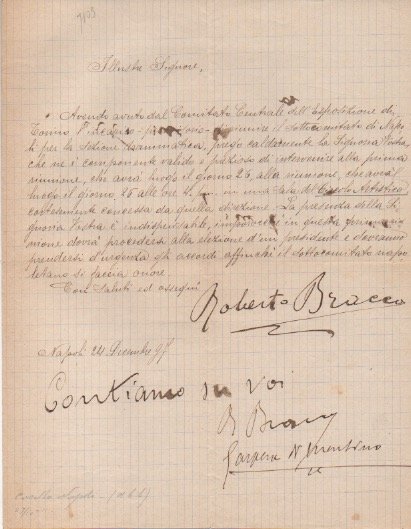 Illustre Signore,
Avendo avuto dal Comitato Centrale dell'Esposizione di
Torino l'incarico di riunire il sottocomitato di Napo-
li per la sezione drammatica, prego caldamente la Signoria Vostra,
che ne è componente valido e prezioso di intervenire alla prima
riunione, che avrà luogo il giorno 26, alla riunione, che avrà
luogo il giorno 26 alle ore in una sala del Circolo Artistico
cortesemente concessa da quella direzione. La presenza della Si-
gnoria Vostra è indispensabile, imperocchè in questa prima riu-
nione dovrà procedersi alla elezione d'un presidente e dovranno
prendersi d'urgenza gli accordi affinchè il sottocomitato napo-
letano si faccia onore.
Con saluti ed ossequi
Roberto Bracco
Napoli 24 Dicembre 97
Contiamo su voi
R Bracco